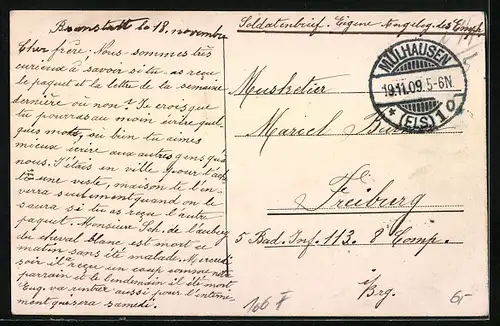 Brunstatt le 18. novembre
Cher frère! Nous sommes très
curieux à savoir si tu as reçu
le paquet et la lettre de la semaine
dernière ou non? Je crois que
tu pourras au moin écrire quel-
ques mots, ou bin tu aimes
mieux écrire aux autres gens que
nous. J'étais en ville pour t'ach
une veste, maison te l'en-
verra seulement quand on le
saura si tu as reçu l'autre
paquet. Monsieur Sch. de l'auberg
du cheval blanc est mort ce
matin sans été malade. Mercredi
soir il reçu un coup comme
parrain et le lendemain il été mort
Eug. va rentrer aussi pour l'enterre-
ment qui sera samedi.
Soldatenbrief. Eigene Angeleg. des Empf.
MÜLHAUSEN
19.11.09. 5-6N
* (ELS) 1 o
Musketier
Marcel
Freiburg
5 Bad. Inf. 113. 8 Comp.
i/Brg.
166
6,-